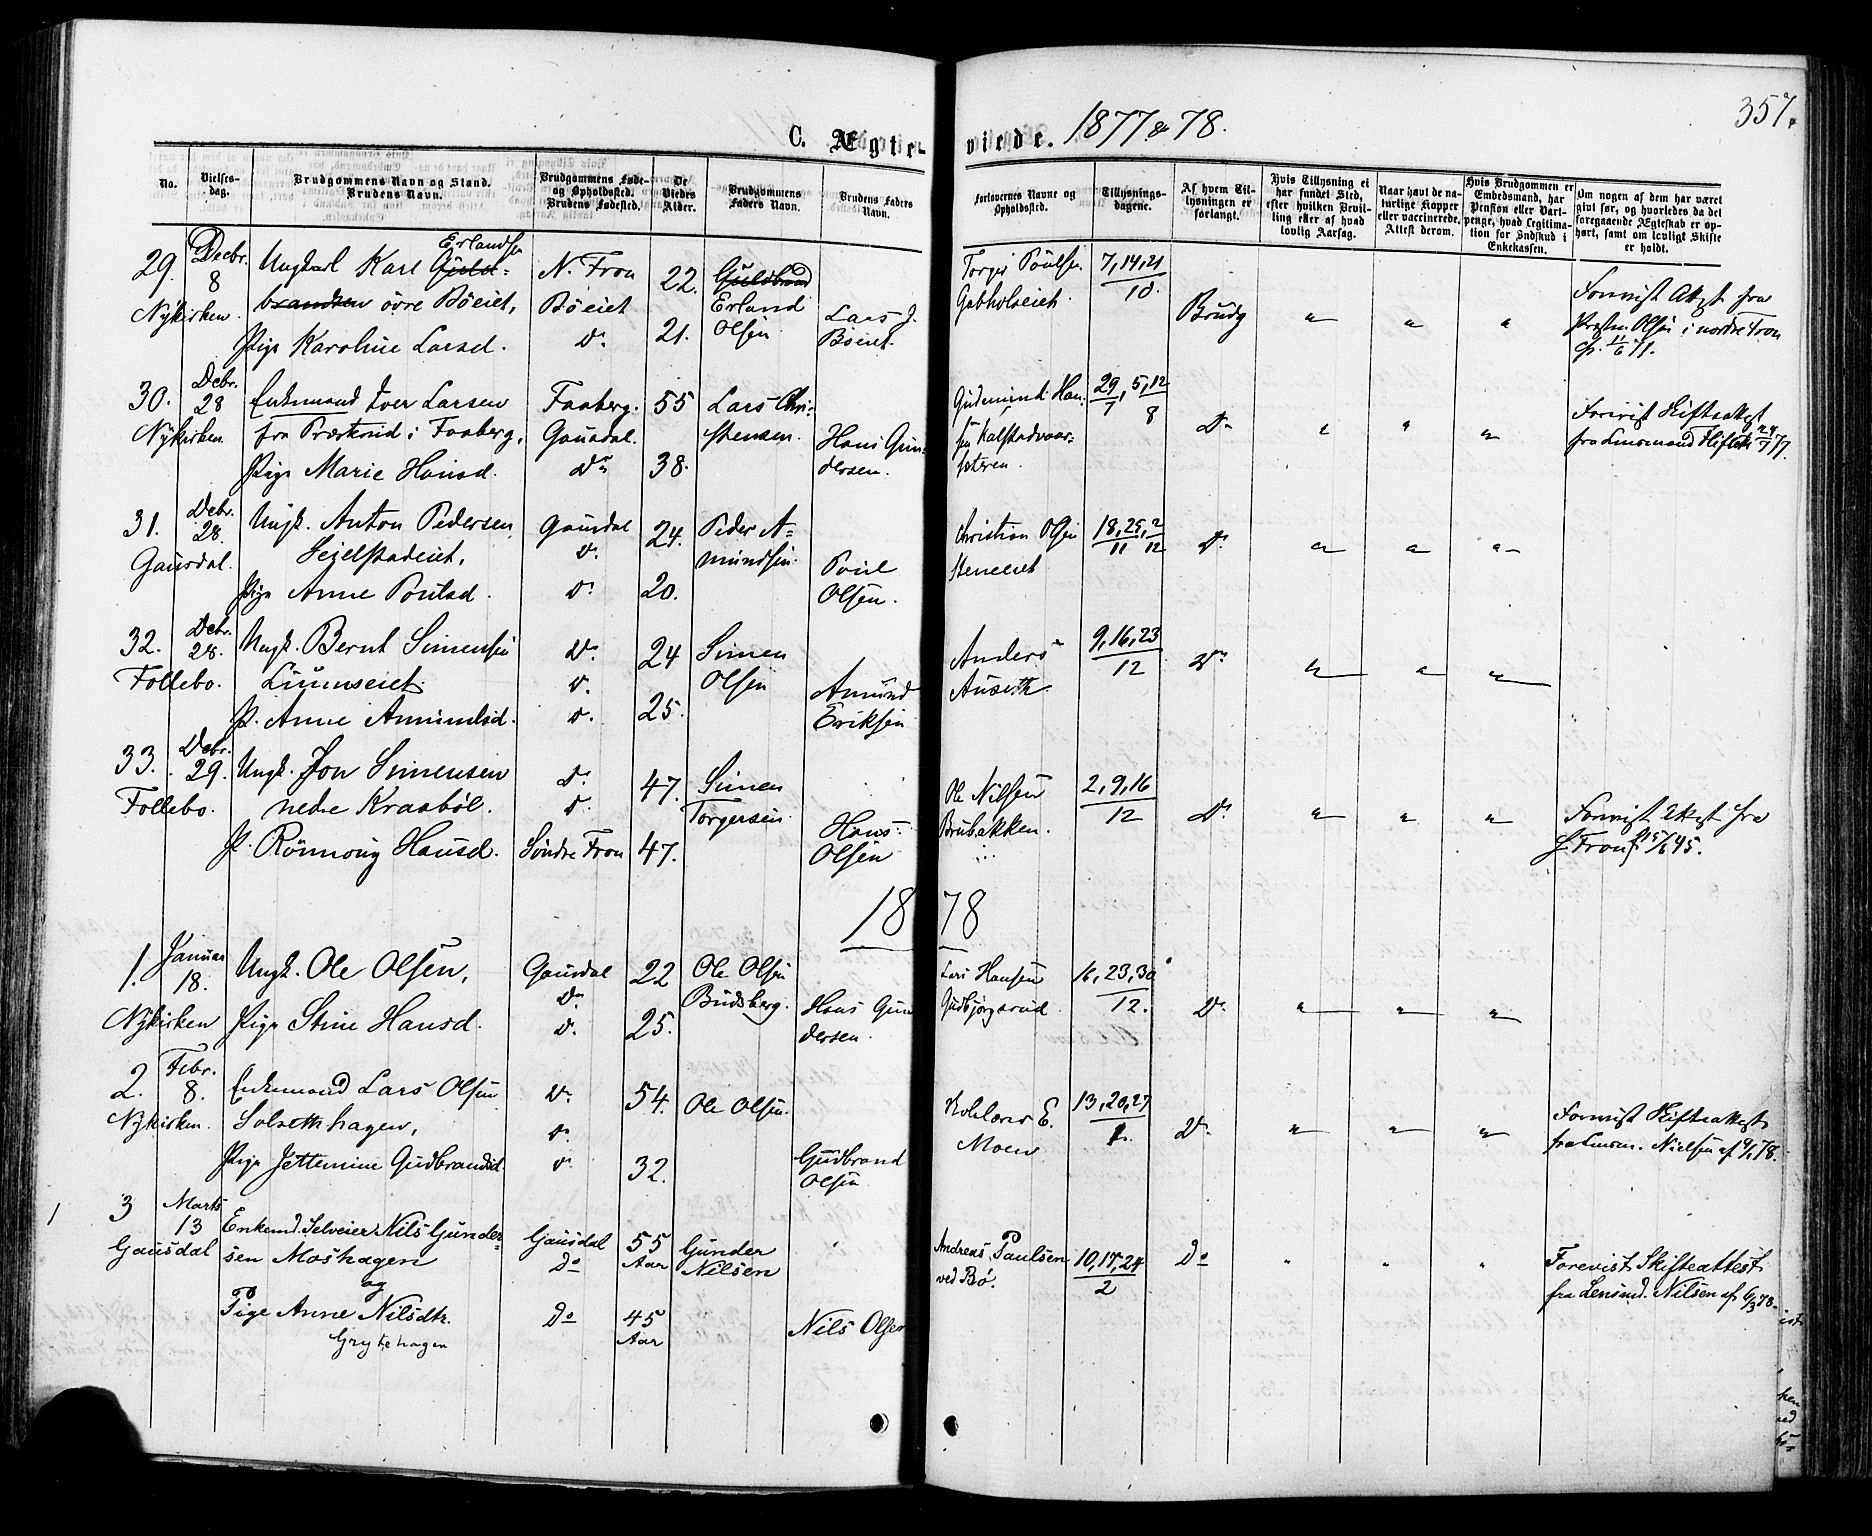 357.
C. Ægte-
viede. 1877 & 78.
No.
Vielses-
dag.
Brudgommens Navn og Stand.
Brudens Navn.
Brudgommens Føde-
og Opholdssted.
Brudens Fødested.
De
Viedes
Alder.
Brudgommens
Faders Navn.
Brudens Faders
Navn.
Forlovernes Navne og
Opholdssted.
Tillysnings-
dagene.
Af hvem Til-
lysningen er
forlangt.
Hvis Tillysning ei
har fundet Sted,
efter hvilken Bevil-
ling eller af hvad
lovlig Aarsag.
Naar havt de na-
turlige Kopper
eller vaccinerede.
Attest derom.
Hvis Brudgommen er
Embedsmand, har
Pension eller Vart-
penge, hvad Legitima-
tion for Indskud i
Enkekassen.
Om nogen af dem har været
gift før, og hvorledes da det
foregaaende Ægteskab er op-
hørt, samt om lovligt Skifte
er holdt.
29. Decbr. 8 Nykirken
Ungkarl Karl Erlandsen
øvre Böeiet,
Pige Karoline Larsd.
N. Fron
Böeiet
Do
22.
21.
Guldbrand
Erland
Olsen
Lars J.
Böeiet.
Torger Poulsen
7, 14, 21
10.
Brudg
" " "
Forevist Attest fra
Præsten Olsen i nordre Fron
11/6 71.
30. Debr. 28 Nykirken.
Enkemand Iver Larsen
fra Præstrud i Faaberg,
Pige Marie Hansd.
Faaberg.
Gausdal.
Do
55
38.
Lars Chri-
stensen.
Hans Gun-
dersen.
Gudmund Han-
sen Kalstadvaar-
sæteren.
29, 5, 12
7 8
Do
" " "
Forevist Skifteattest
fra Lensmand
31. Debr. 28. Gausdal.
Ungk. Anton Pedersen
Pige Anne Poulsd.
Gausdal
Do
Do
24.
20.
Peder A-
mundsen.
Poul
Olsen.
Christian Olsen
18, 25, 2
11 12
Do
" " "
32. Debr. 28. Follebo.
Ungk. Bernt Simensen
Liumseiet.
P. Anne Amundsd.
Do
Do
Do
24
25.
Simen
Olsen
Amund
Eriksen
Anders
Auseth.
9, 16, 23
12
Do
" " "
33. Debr. 29. Follebo.
Ungk. Jon Simensen
nedre Kraabøl.
P. Rönnoug Hansd.
Do
Do
Söndre Fron
47.
47.
Simen
Torgersen.
Hans
Olsen
Ole Nilsen
Brubakken.
2, 9, 16
12
Do
" " "
Forevist Attest fra
S. Fron
1878
1. Januar 18. Nykirken
Ungk. Ole Olsen,
Pige Stine Hansd.
Gausdal
Do
Do
22
25.
Ole Olsen
Budsberg.
Hans Gun
dersen.
Lars Hansen
Gudbjørgsrud
16, 23, 30
12.
Do
" " "
2. Febr. 8. Nykirken.
Enkemand Lars Olsen
Solsethhagen,
Pige Jettemine Gudbrandsd.
Do
Do
Do
54.
32.
Ole Olsen.
Gudbrand
Olsen
E.
Moen
13, 20, 27
1.
Do
" " "
Forevist Skifteattest
fra Lensm. Nielsen af 4/1 78.
3 Marts 13 Gausdal
Enkemd. Selveier Nils Gunder-
sen Moshagen
og
Pige Anne Nilsdtr.
Grytehagen
Gausdal
Do
Do
55
Aar
45
Aar
Gunder
Nilsen
Nils Olsen
Andreas Paulsen
ved Bø.
10, 17, 24
2
Do
" " "
Forevist Skifteattest
fra Lensmd. Nilsen af 6/3 78.